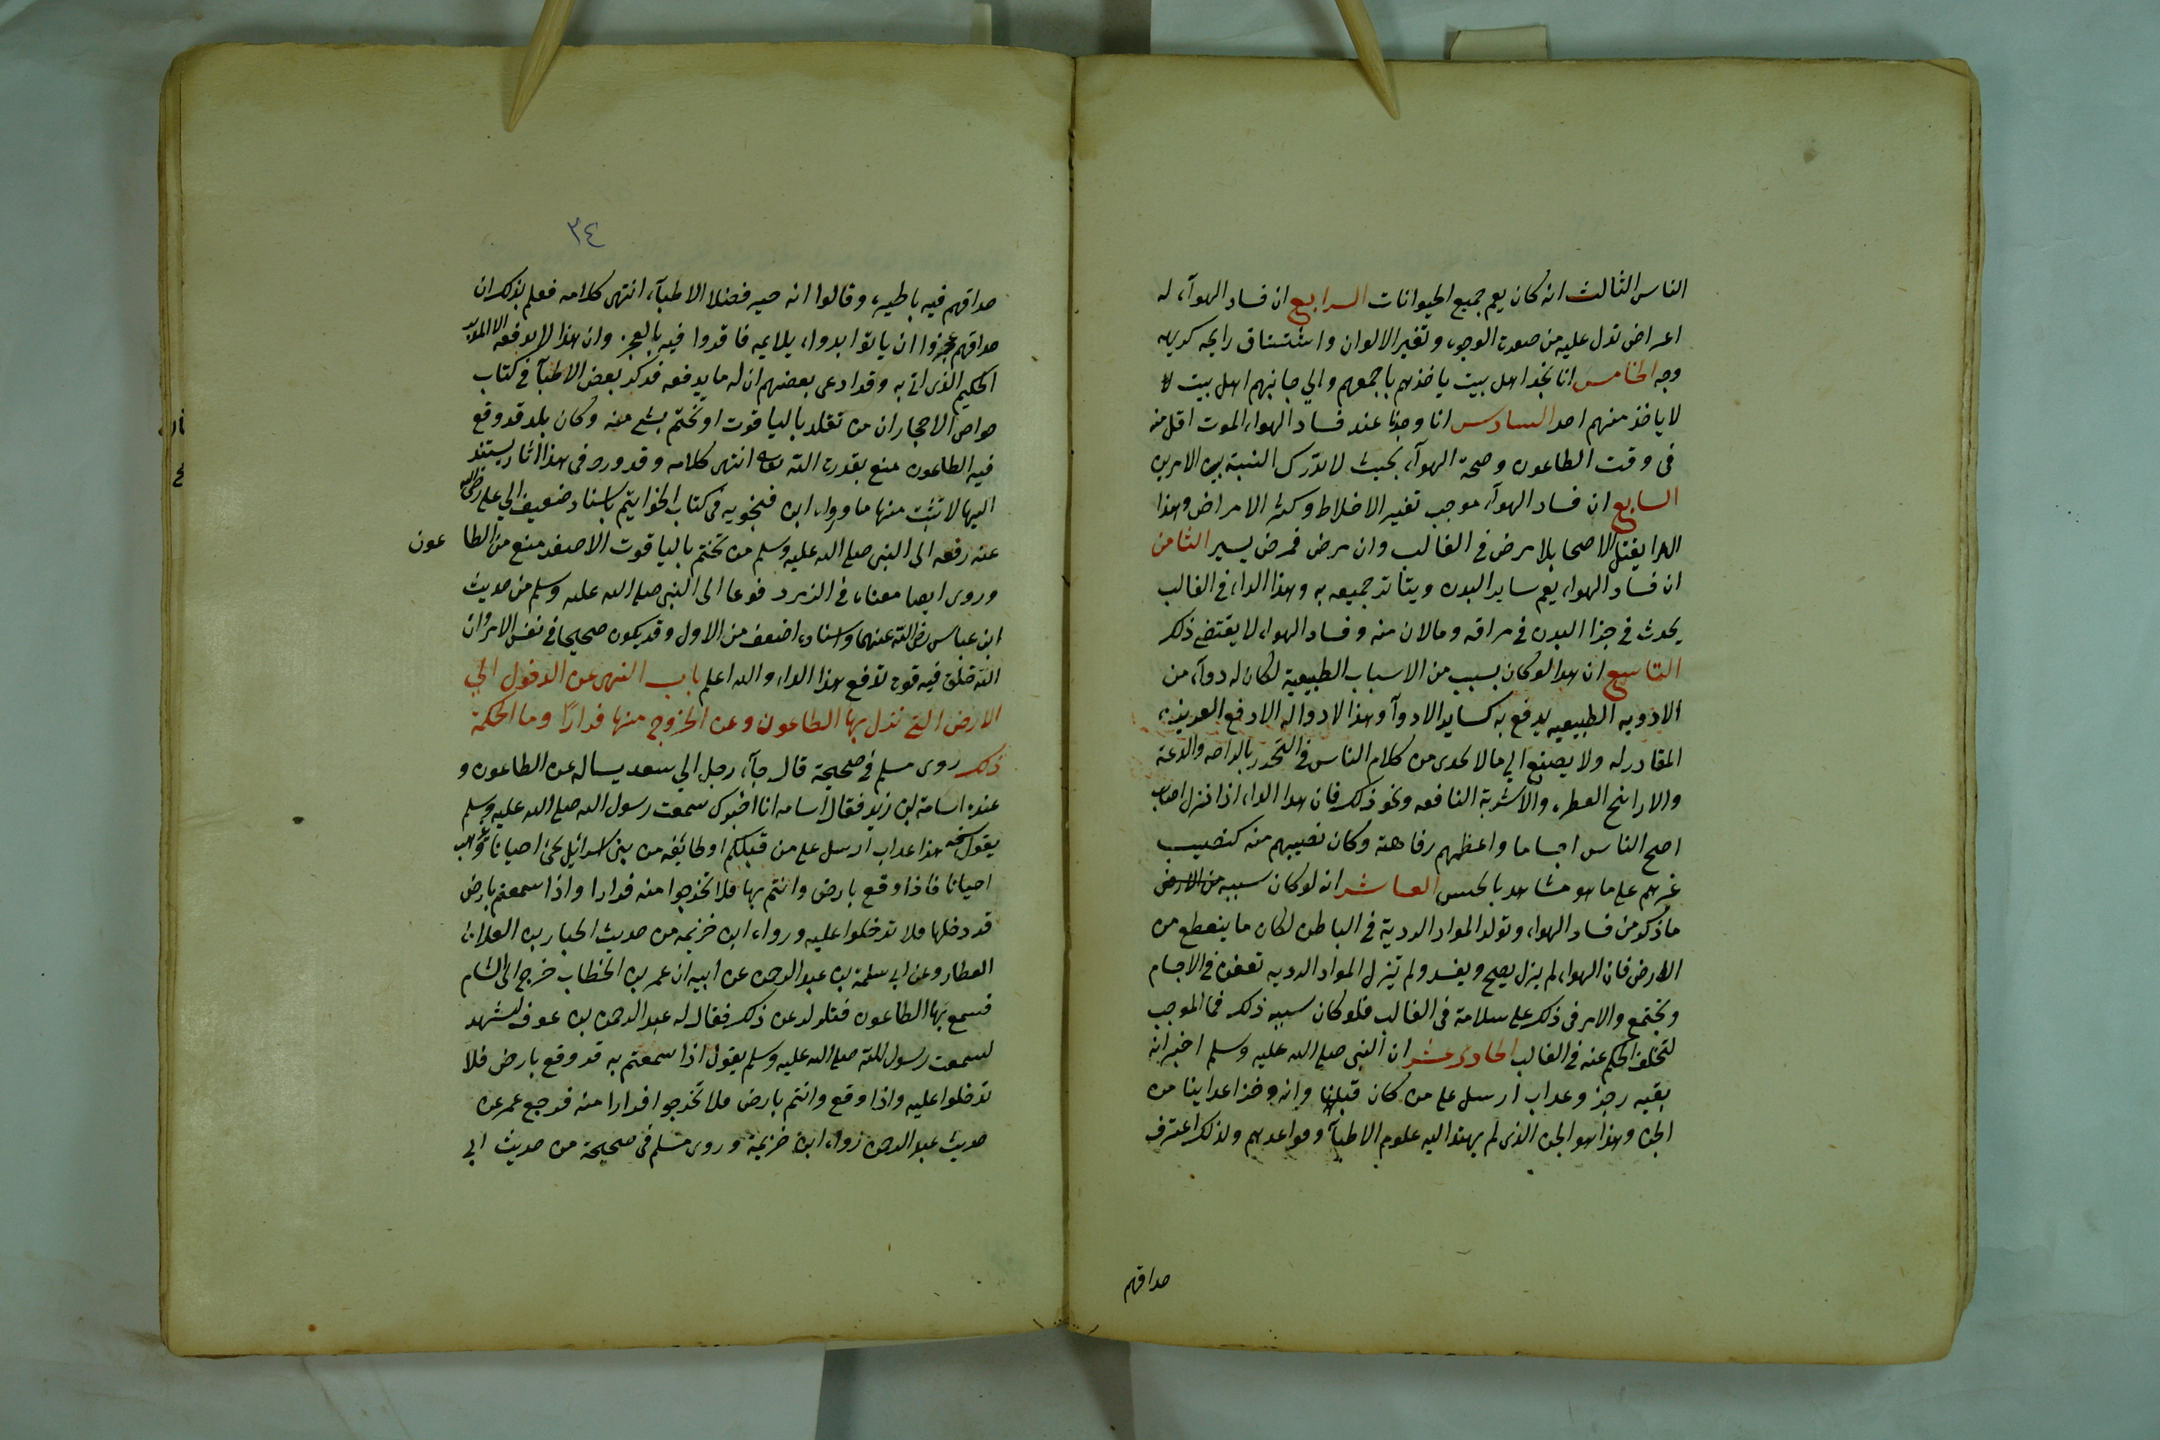 الناس الثالث انه كان يعم جميع الحيوانات الرابع ان فساد الهوآء له
اعراض تدل عليه من صورت الوجوه وتغير الالوان واستنشاق رايحه كريهه
وجه الخامس انا نجد اهل بيت ياخذهم باجمعهم والي جانبهم اهل بيت لا
لا ياخذ منهم احد السادس انا وجدنا عند فساد الهواء الموت اقل منه
فى وقت الطاعون وصحة الهوآء بحيث لا تدرك النسبة بين الامرين
السابع ان فساد الهوآء موجب تغير الاخلاط وكثرة الامراض وهذا
الدا يقتل الاصحا بلا مرض فى الغالب وان مرض فمرض يسير الثامن
ان فساد الهواء يعم ساير البدن ويتاثر جميعه به وهذا الداء فى الغالب
يحدث فى جزا البدن فى مراقه ومالان منه وفساد الهواء لا يقتضى ذلك
التاسع ان هدا لو كان بسبب من الاسباب الطبيعية لكان له دوآء من
الادويه الطبيعيه يدفع به كساير الادوآ وهذا لا دوا له الا دفع العزيز
المقادر له ولا يصنع الي ما لا يحدى من كلام الناس فى التحذر بالراحه والدعة
والارايح العطره والاشربة النافعه ونحو ذلك فان هدا الداء اذا نزل اصاب
اصح الناس اجساما واعظمهم رفاهة وكان نصيبهم منه كنصيب
غيرهم على ما هو مشاهد بالحس العاشر انه لو كان سببه من الارض
ما ذكر من فساد الهواء وتولد المواد الردية فى الباطن لكان ما ينعطع من
الارض فان الهواء لم يزل يصح ويفسد ولم تيزل المواد الرديه تعفن فى الاجسام
وتجتمع والامر فى ذلك على سلامة فى الغالب فلو كان سببه ذلك فما الموجب
لتخلف الحكم عنه فى الغالب الحادى عشر ان النبى صلى الله عليه وسلم اخبر انه
بقيه رجز وعداب ارسل على من كان قبلنا وانه وخز اعداينا من
الجن وهذا هو الجن الذى لم يهتد اليه علوم الاطبآء وقواعدهم ولذلك اعترف
حداقهم
٣٤
حداقهم فيه باطيه وقالوا انه حير فضلا الاطبآء انتهى كلامه فعلم بذلك ان
حداقهم عجزوا ان ياتوا بدواء يلايمه فاقروا فيه بالعجز وان هذا لا يدفعه الا المدبر
الحكيم الذى اتى به وقد ادعى بعضهم ان له ما يدفعه فذكر بعض الاطبآ فى كتاب
خواص الاحجار ان من تقلد بالياقوت او تختم بشئ منه وكان ببلد قد وقع
فيه الطاعون منع بقدرت الله تعالى انتهى كلامه وقد ورد فى هذا اثار يستند
اليها لا تثبت منها ما رواه ابن فنجويه فى كتاب الخواتيم باسناد ضعيف الي على رضى الله
عنه رفعه الى النبى صلى الله عليه وسلم من تختم بالياقوت الاصفر منع من الطا عون
وروى ايصا معناه فى الزمرد فوعا الى النبى صلى الله عليه وسلم من حديث
ابن عباس رضى الله عنهما واسناده اضعف من الاول وقد يكون صحيحا فى نفس الامر وان
الله خلق فيه قوت تدفع هذا الداء والله اعلم باب النهى عن الدخول الي
الارض التى نزل بها الطاعون وعن الخزوج منها فرارًا وما الحكمة
ذلك روى مسلم فى صحيحه قال جآء رجل الي سعد يساله عن الطاعون و
عنده اسامة بن زيد فقال اسامه انا اخبرك سمعت رسول الله صلى الله عليه وسلم
يقول هذا عداب ارسل على من قبلكم او طايفه من بنى اسرائيل يجئ احيانا ويذهب
احيانا فاذا وقع بارض وانتم بها فلا تخرجوا منه فرارا واذا سمعتم بارض
قد دخلها فلا تدخلوا عليه ورواه ابن خزيمه من حديث الجبار بن العلا بن
العطار وعن ابي سلمة بن عبد الرحمن عن ابيه ان عمر بن الخطاب خرج الى الشام
فسمع بها الطاعون فتلوم عن ذلك فقال له عبد الرحمن بن عوف ليشهد
لسمعت رسول الله صلى الله عليه وسلم يقول اذا سمعتم به قد وقع بارض فلا
تدخلوا عليه واذا وقع وانتم بارض فلا تخرجوا فرارا منه فرجع عمر عن
حديث عبد الرحمن رواه ابن خزيمة وروى مسلم فى صحيحة من حديث ابي